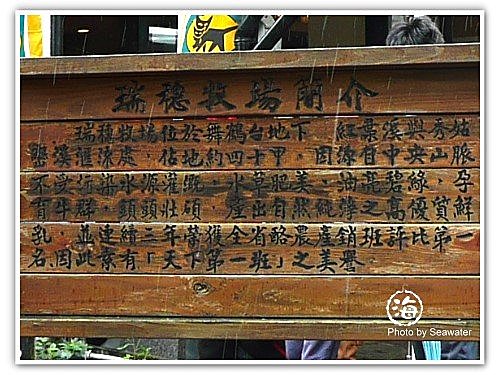 瑞穗牧場簡介
瑞穗牧場位於舞鶴台地下，紅葉溪與秀姑
巒溪滙流處，佔地約四十甲。因源自中央山脈
不受污染水源灌溉，水草肥美、油亮碧綠，孕
育牛群，頭頭壯碩，產出自然純淨之高優質鮮
乳，並連續三年榮獲全省酪農產銷班評比第一
名，因此素有「天下第一班」之美譽。
海
Photo by Seawater